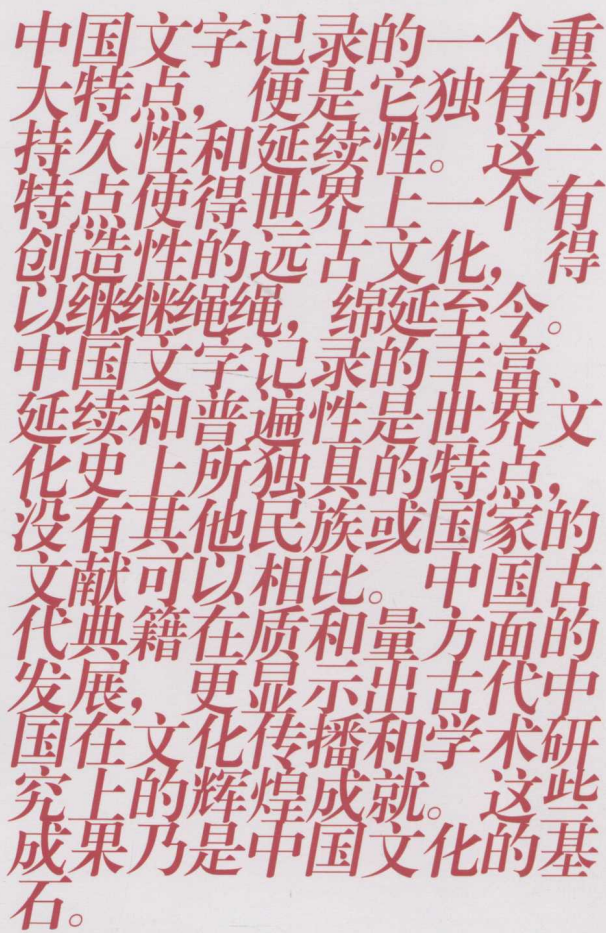 中国文字记录的一个重
大特点，便是它独有的
持久性和延续性。这一
特点使得世界上一个有
创造性的远古文化，得
以继继绳绳，绵延至今。
中国文字记录的丰富、
延续和普遍性是世界文
化史上所独具的特点，
没有其他民族或国家的
文献可以相比。中国古
代典籍在质和量方面的
发展，更显示出古代中
国在文化传播和学术研
究上的辉煌成就。这些
成果乃是中国文化的基
石。